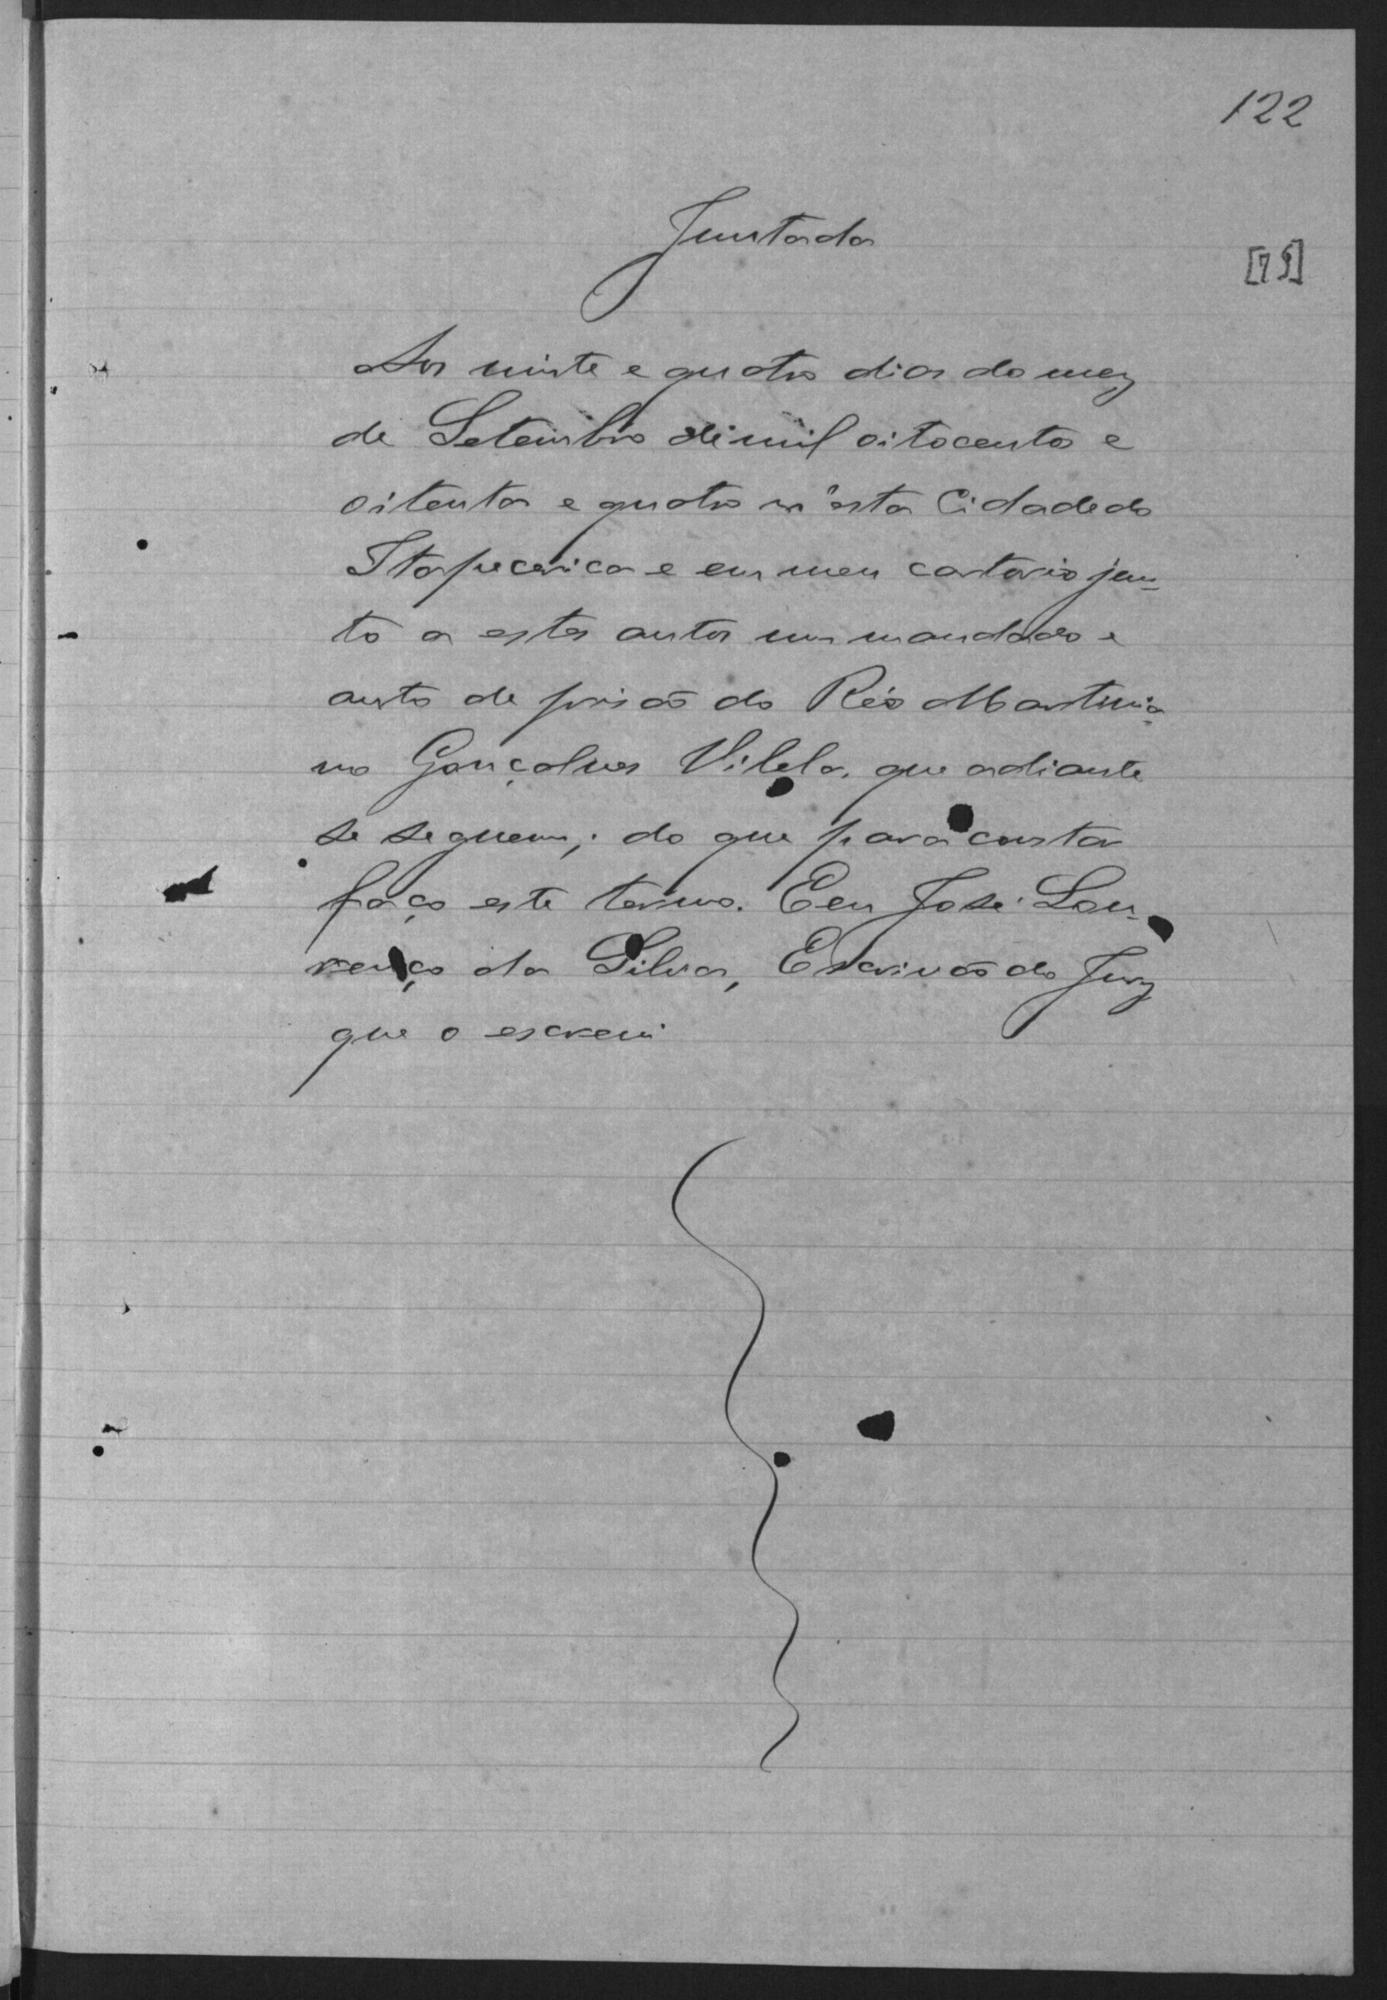 122
Juntada
[75]
Aos vinte e quatro dias do mez
de Setembro de mil oitocentos e
oitenta e quatro n'esta Cidade do
Itapecerica e em meu cartorio jun-
to a estes autos um mandado e
auto de prisão do Réo Martinia-
no Gonçalves Vilela, que adiante
se seguem; do que para constar
faço este termo. Eeu José Lou-
renço da Silva, Escrivão do Jury
que o escrevi